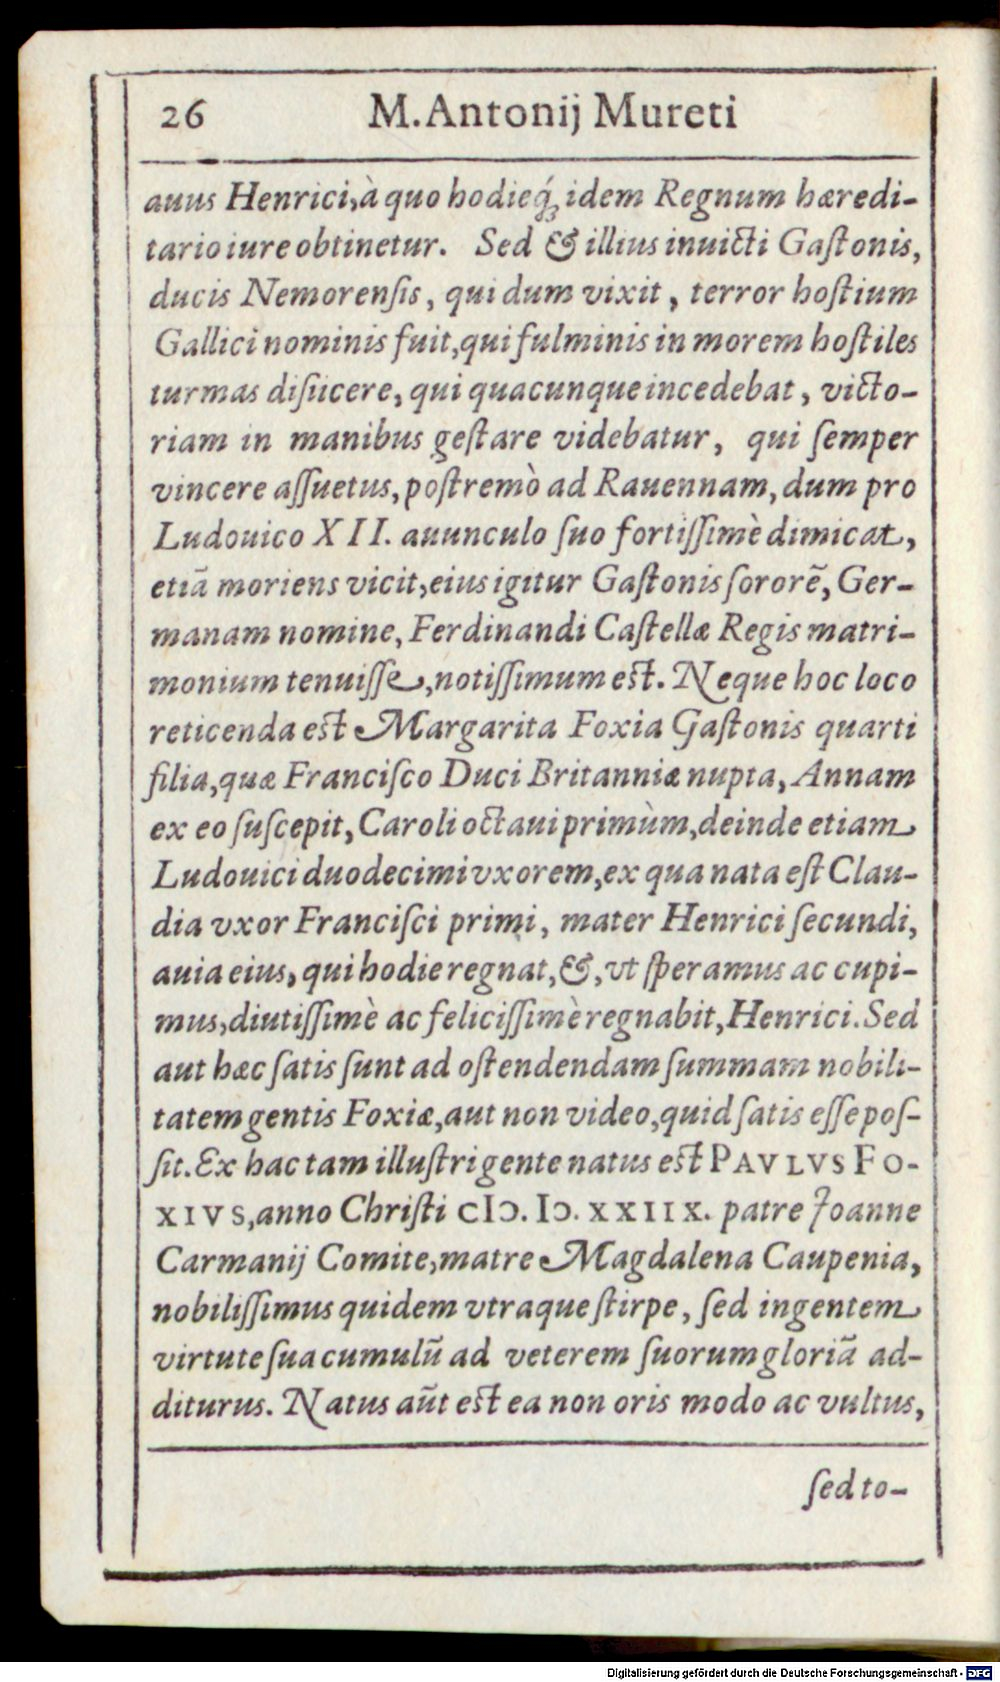 26 M. Antonij Mureti
auus Henrici, à quo hodieq́; idem Regnum hæredi-
tario iure obtinetur. Sed & illius inuicti Gaſtonis,
ducis Nemorenſis, qui dum vixit, terror hoſtium
Gallici nominis fuit, qui fulminis in morem hoſtiles
turmas diſiicere, qui quacunque incedebat, victo-
riam in manibus geſtare videbatur, qui ſemper
vincere aſſuetus, poſtremò ad Rauennam, dum pro
Ludouico XII. auunculo ſuo fortiſſimè dimicat,
etiã moriens vicit, eius igitur Gaſtonis ſororẽ, Ger-
manam nomine, Ferdinandi Caſtellæ Regis matri-
monium tenuiſſe, notiſſimum eſt. Neque hoc loco
reticenda eſt Margarita Foxia Gaſtonis quarti
filia, quæ Franciſco Duci Britanniæ nupta, Annam
ex eo ſuſcepit, Caroli octaui primùm, deinde etiam
Ludouici duodecimi vxorem, ex qua nata eſt Clau-
dia vxor Franciſci primi, mater Henrici ſecundi,
auia eius, qui hodie regnat, &, vt ſperamus ac cupi-
mus, diutiſſimè ac feliciſſimè regnabit, Henrici. Sed
aut hæc ſatis ſunt ad oſtendendam ſummam nobili-
tatem gentis Foxiæ, aut non video, quid ſatis eſſe poſ-
ſit. Ex hac tam illuſtri gente natus eſt PAVLVS FO-
XIVS, anno Chriſti CIↃ. IↃ. XXIIX. patre Joanne
Carmanij Comite, matre Magdalena Caupenia,
nobiliſſimus quidem vtraque ſtirpe, ſed ingentem
virtute ſua cumulũ ad veterem ſuorum gloriã ad-
diturus. Natus aũt eſt ea non oris modo ac vultus,
ſed to-
Digitalisierung gefördert durch die Deutsche Forschungsgemeinschaft - DFG